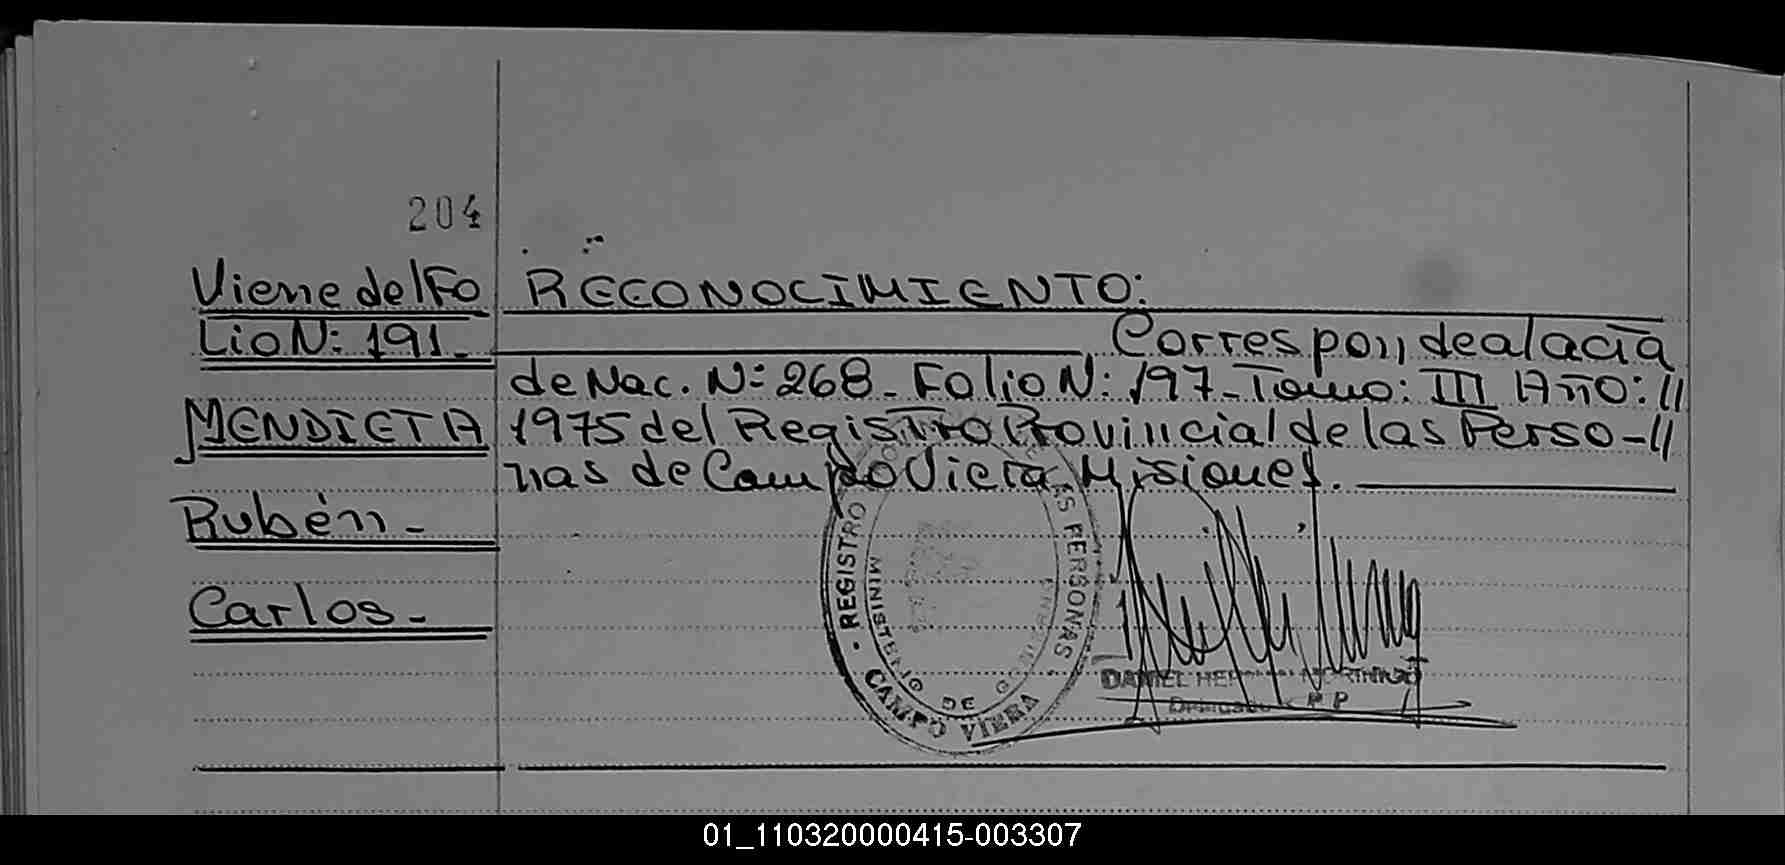 204
Viene del Fo
Lio N: 191.-
MENDIETA
Rubén -
Carlos. -
RECONOCIMIENTO:
Corresponde a la acta
de Nac. N: 268 - Folio N: 197 - Tomo: III Año: //
1975 del Registro Provincial de las Perso - //
nas de Campo Viera, Misiones.
REGISTRO
AS PERSONAS
MINISTERIO DE GOBIERNO
CAMPO VIERA
DANIEL
01_110320000415-003307